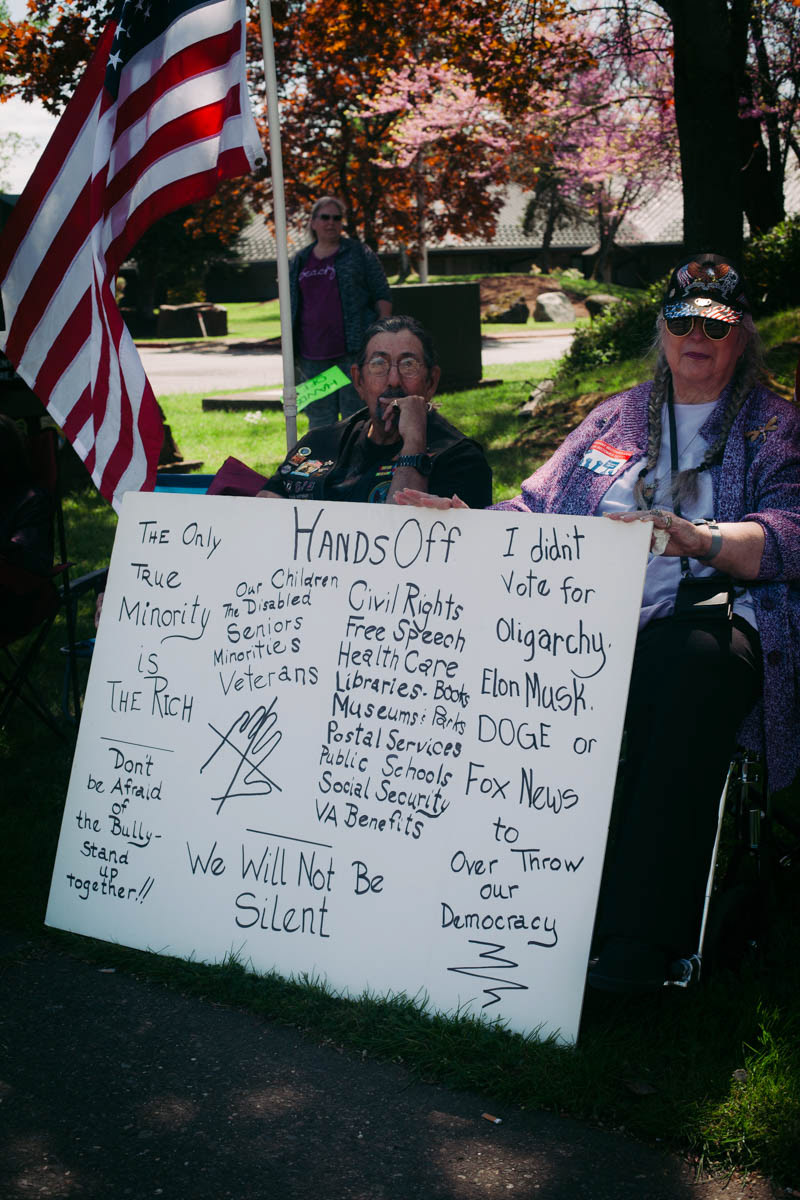 The Only
True
Minority
is
The Rich
Don't
be Afraid
of
the Bully-
Stand
up
together!!
Hands Off
Our Children
The Disabled
Seniors
Minorities
Veterans
Civil Rights
Free Speech
Health Care
Libraries - Books
Museums & Parks
Postal Services
Public Schools
Social Security
VA Benefits
We Will Not Be
Silent
I didn't
Vote for
Oligarchy.
Elon Musk.
DOGE or
Fox News
to
Over Throw
our
Democracy
HANDS
OFF